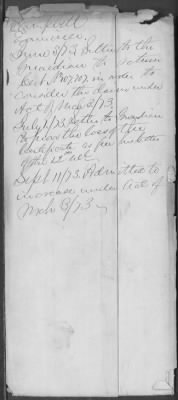 June 3/73. Letter to the
Guardian to return
Cert. No. 107,707, in order to
consider the claim under
Act of Mch 3/73.
July 1/73 Letter to Guardian
to prove the loss of the
Certificate as per his letter
of the 12th ult.
Sept 11/73. Admitted to
increase under Act of
Mch 3/73